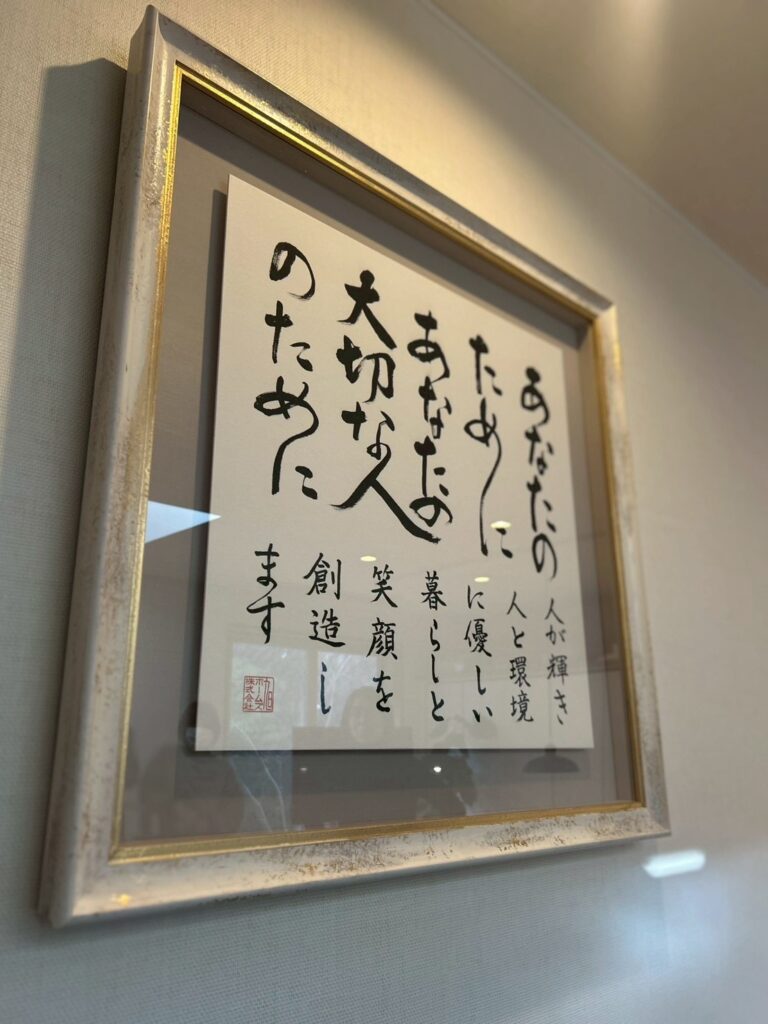 あなたの
ために
あなたの
大切な人
のために
人が輝き
人と環境
に優しい
暮らしと
笑顔を
創造し
ます
ホームズ
株式会社